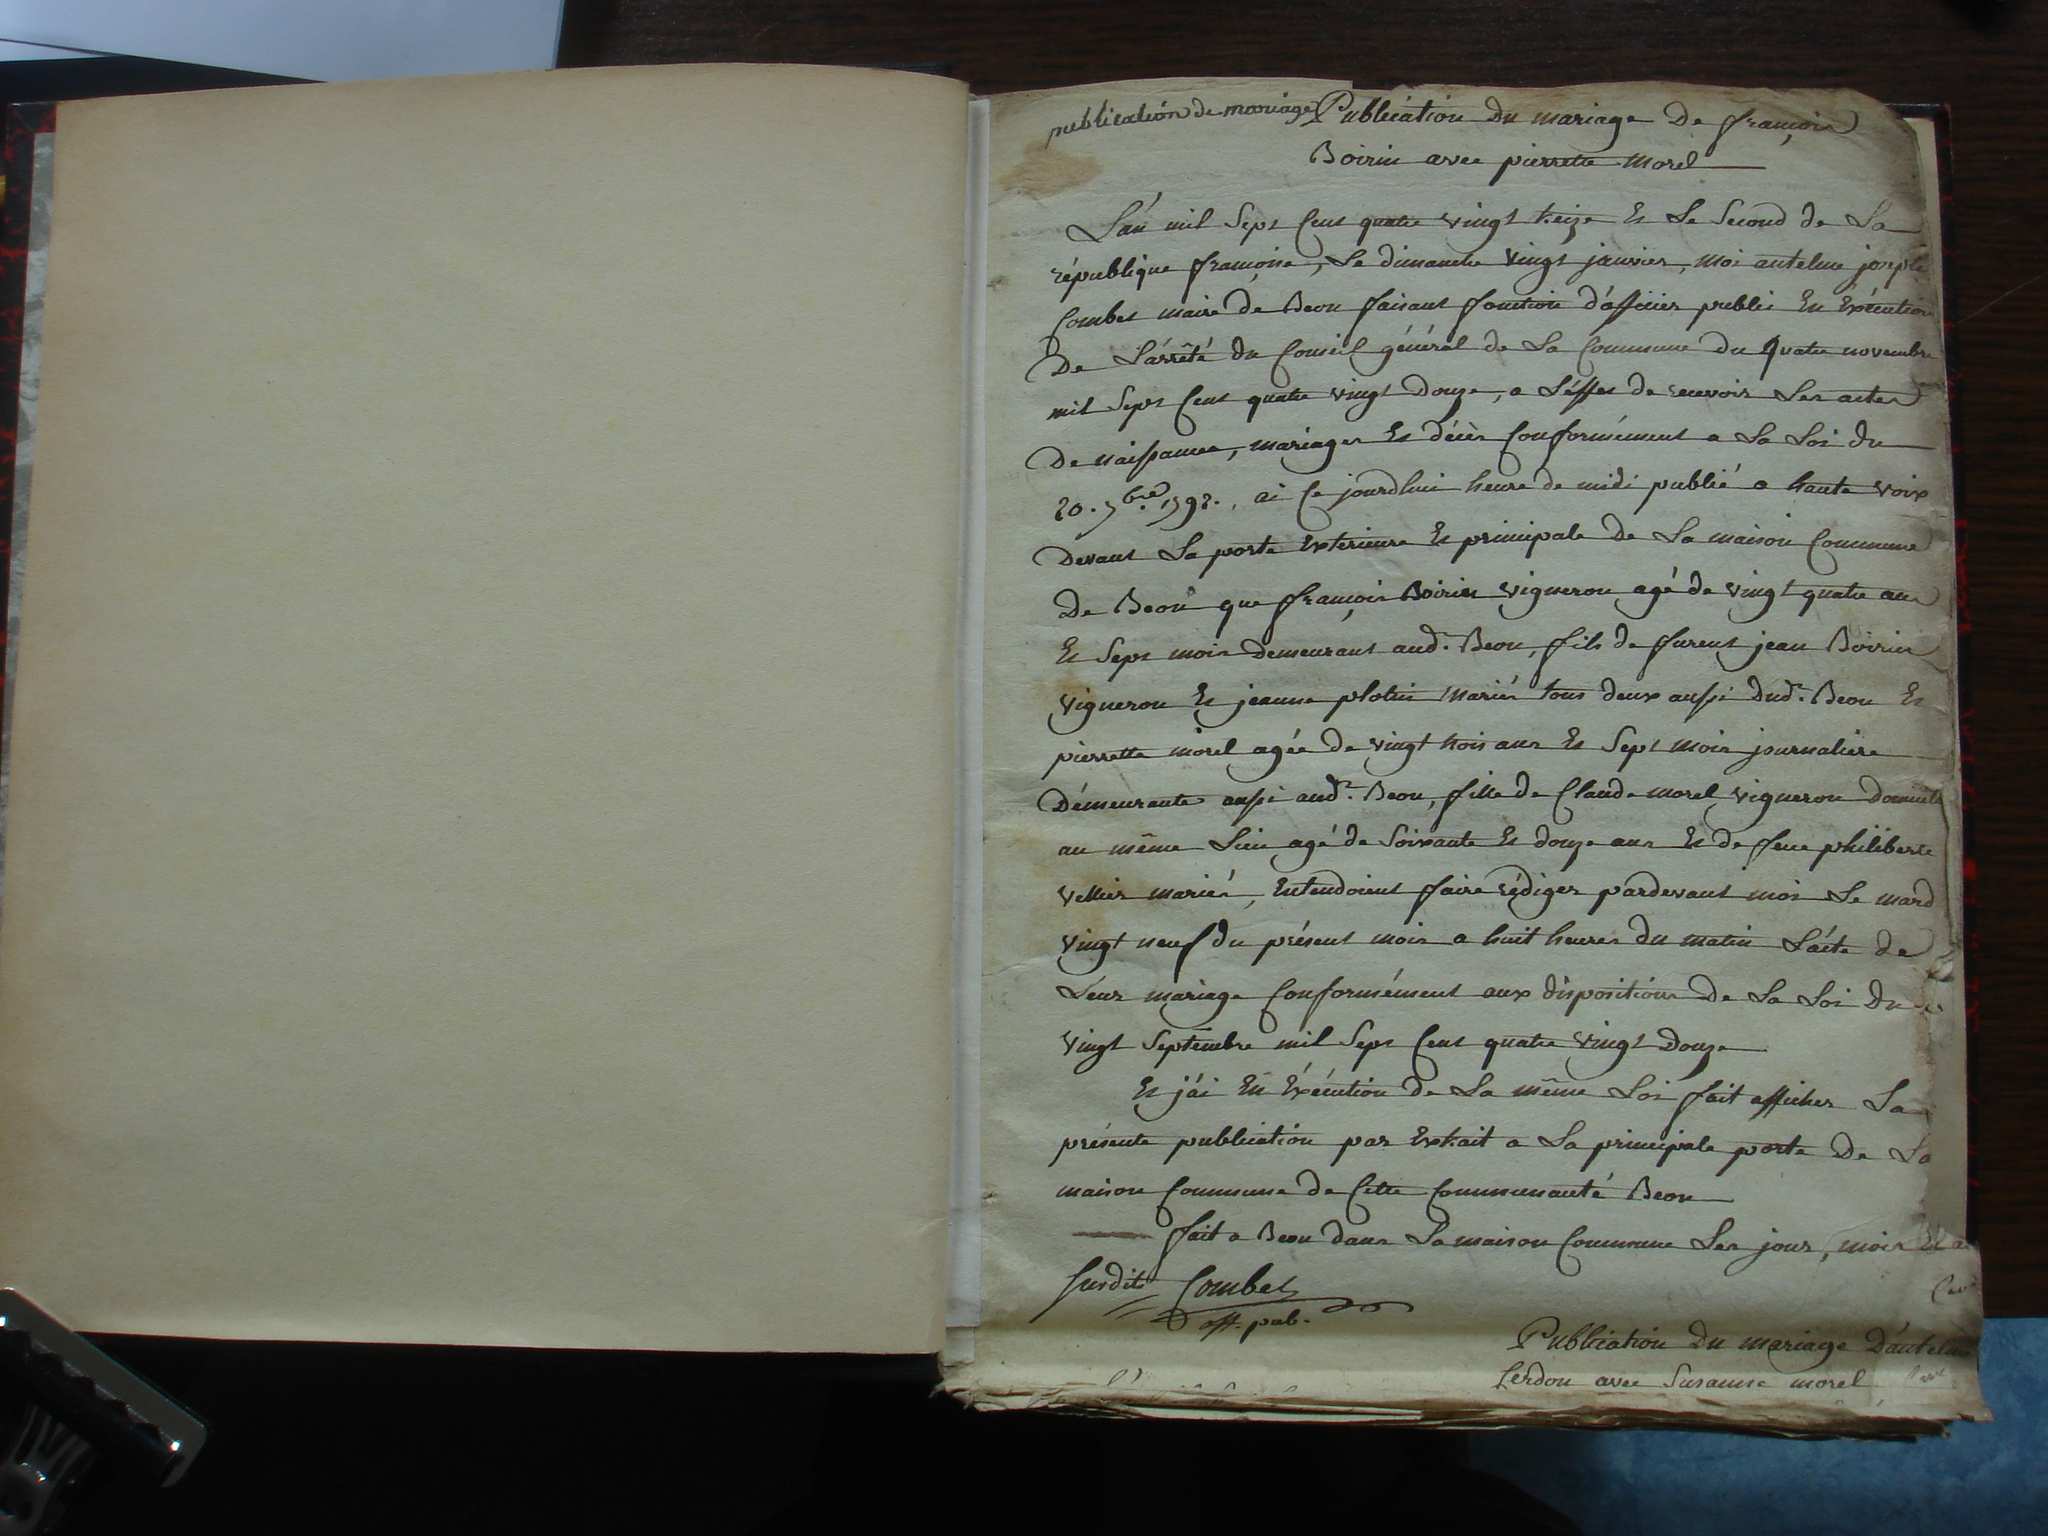 publication de mariage Publication du mariage De françois
Boirin avec pierrette Morel
L'an mil Sept Cent quatre vingt treize Et Le Second de La
république françoise, Le dimanche vingt janvier, moi antelme joseph
Combet maire de Beon faisant fonction d'officier public En Exécution
De L'arrêté du Conseil général de La Commune du quatre novembre
mil Sept Cent quatre vingt Douze, a L'éffet de recevoir Les actes
De naissance, mariages Et décès Conformément a La Loi du
20. 7bre 1792., ai Ce jourdhui heure de midi publié a haute voix
Devant La porte Exterieure Et principale de La maison Commune
De Beon que françois Boirin vigneron agé de vingt quatre ans
Et Sept mois Demeurant aud. Beon, fils de furent jean Boirin
vigneron Et jeanne plotin mariés tous deux aussi dud. Beon Et
pierrette morel agée de vingt trois ans Et Sept mois journalière
Démeurante aussi aud. Beon, fille de Claude morel vigneron
au même Lieu agé de Soixante Et douze ans Et de feue philiberte
vettier mariés, Entendoient faire rédiger pardevant moi Le mard
vingt neuf du présent mois a huit heures du matin L'acte de
Leur mariage Conformément aux dispositions De La Loi Du
vingt Septembre mil Sept Cent quatre vingt Douze
Et j'ai En Exécution de La même Loi fait afficher La
présente publication par Extrait a La principale porte De La
maison Commune de Cette Communauté Beon
fait a Beon dans La maison Commune Les jour, mois Et a
susdits Combet
off. pub.
Publication Du mariage D'antelme
Cerdon avec Susanne morel